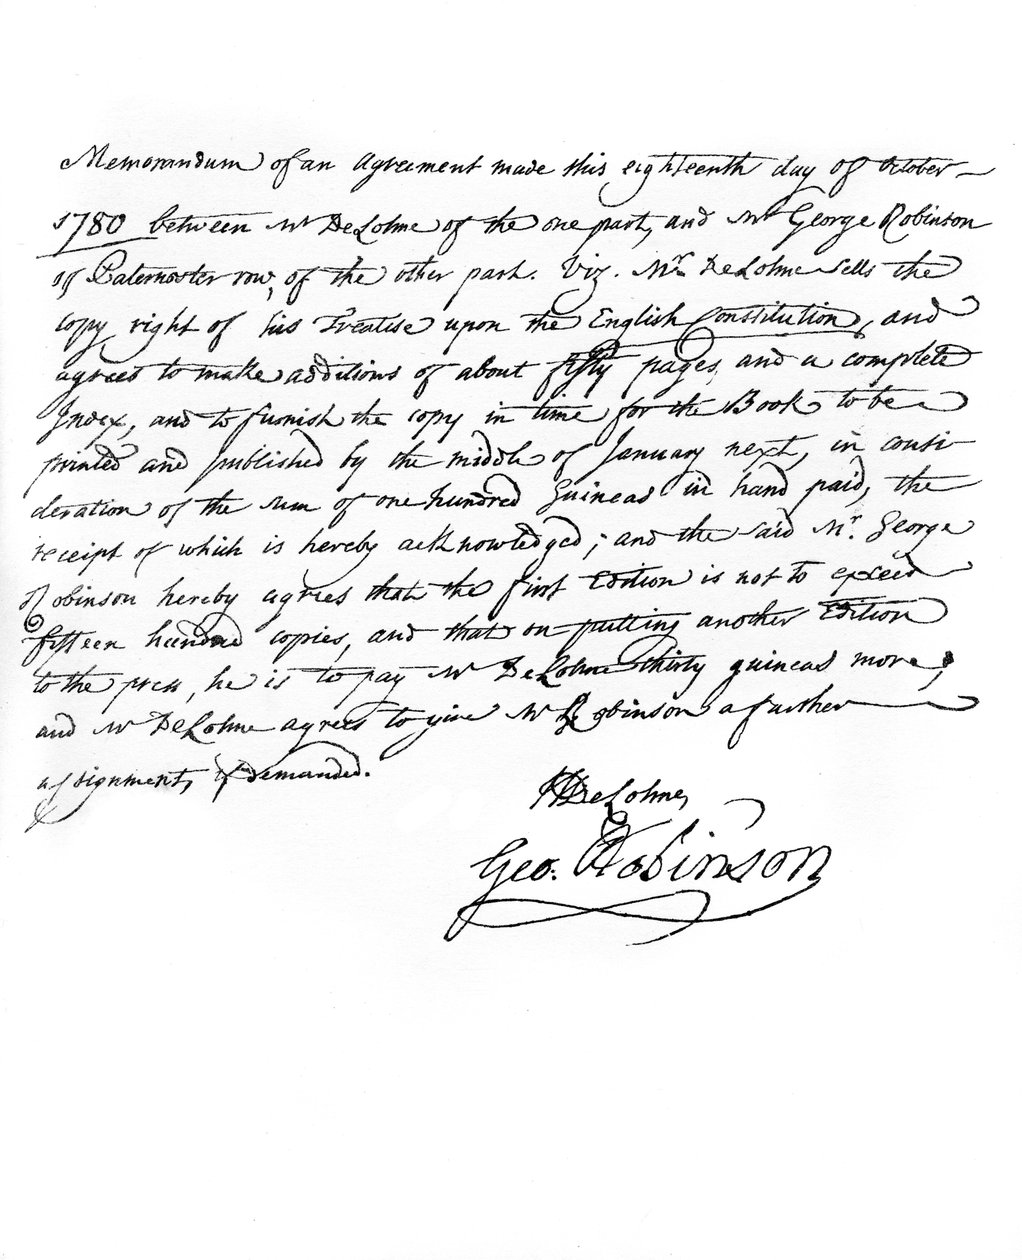 Memorandum of an agreement made this eighteenth day of October
1780 between Mr DeLolme of the one part, and Mr George Robinson
of Paternoster row, of the other part. Viz. Mr. DeLolme sells the
copy right of his Treatise upon the English Constitution, and
agrees to make additions of about fifty pages, and a complete
Index, and to furnish the copy in time for the Book to be
printed and published by the middle of January next, in consi
deration of the sum of one hundred Guineas in hand paid, the
receipt of which is hereby acknowledged; and the said Mr. George
Robinson hereby agrees that the first Edition is not to exceed
fifteen hundred copies, and that on putting another Edition
to the press, he is to pay Mr DeLolme thirty guineas more,
and Mr DeLolme agrees to give Mr Robinson a further
assignment, if demanded.
DeLolme,
Geo. Robinson